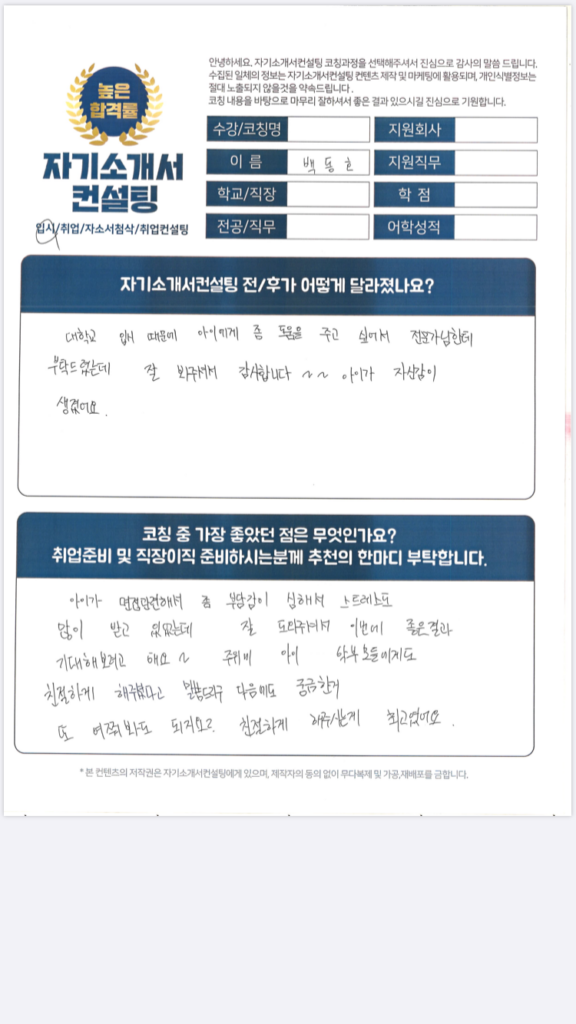 안녕하세요. 자기소개서컨설팅 코칭과정을 선택해주셔서 진심으로 감사의 말씀 드립니다.
수집된 일체의 정보는 자기소개서컨설팅 컨텐츠 제작 및 마케팅에 활용되며, 개인식별정보는
절대 노출되지 않을것을 약속드립니다.
코칭 내용을 바탕으로 마무리 잘하셔서 좋은 결과 있으시길 진심으로 기원합니다.
높은
합격률
자기소개서
컨설팅
입시/취업/자소서첨삭/취업컨설팅
수강/코칭명 지원회사
이 름 백동호 지원직무
학교/직장 학 점
전공/직무 어학성적
자기소개서컨설팅 전/후가 어떻게 달라졌나요?
대학교 입시 때문에 아이에게 좀 도움을 주고 싶어서 전문가님한테
부탁드렸는데 잘 봐주셔서 감사합니다 ~~ 아이가 자신감이
생겼어요.
코칭 중 가장 좋았던 점은 무엇인가요?
취업준비 및 직장이직 준비하시는분께 추천의 한마디 부탁합니다.
아이가 면접관련해서 좀 부담감이 심해서 스트레스도
많이 받고 있었는데 잘 도와주셔서 이번에 좋은결과
기대해보려고 해요~ 주위에 아이 학부모들에게도
친절하게 해주셨다고 말씀드리구 다음에도 궁금한거
또 여쭤봐도 되지요? 친절하게 해주신게 최고였어요.
* 본 컨텐츠의 저작권은 자기소개서컨설팅에게 있으며, 제작자의 동의 없이 무다복제 및 가공,재배포를 금합니다.